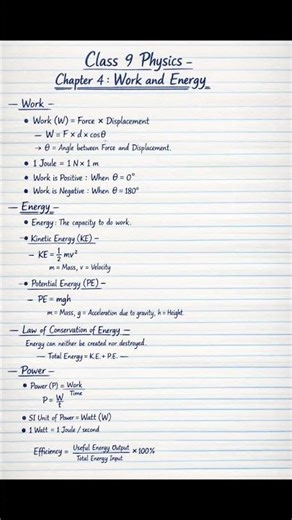 Class 9 Physics –
Chapter 4 : Work and Energy
— Work –
• Work (W) = Force × Displacement
– W = F × d × cosθ
→ θ = Angle between Force and Displacement.
• 1 Joule = 1 N × 1 m
• Work is Positive : When θ = 0°
• Work is Negative : When θ = 180°
— Energy –
• Energy : The capacity to do work.
• Kinetic Energy (KE) –
– KE = 1/2 mv²
m = Mass, v = Velocity
• Potential Energy (PE) –
– PE = mgh
m = Mass, g = Acceleration due to gravity, h = Height
— Law of Conservation of Energy —
Energy can neither be created nor destroyed.
— Total Energy = K.E. + P.E. —
— Power –
• Power (P) = Work/Time
P = W/t
• SI Unit of Power = Watt (W)
• 1 Watt = 1 Joule / second
Efficiency = Useful Energy Output/Total Energy Input × 100%